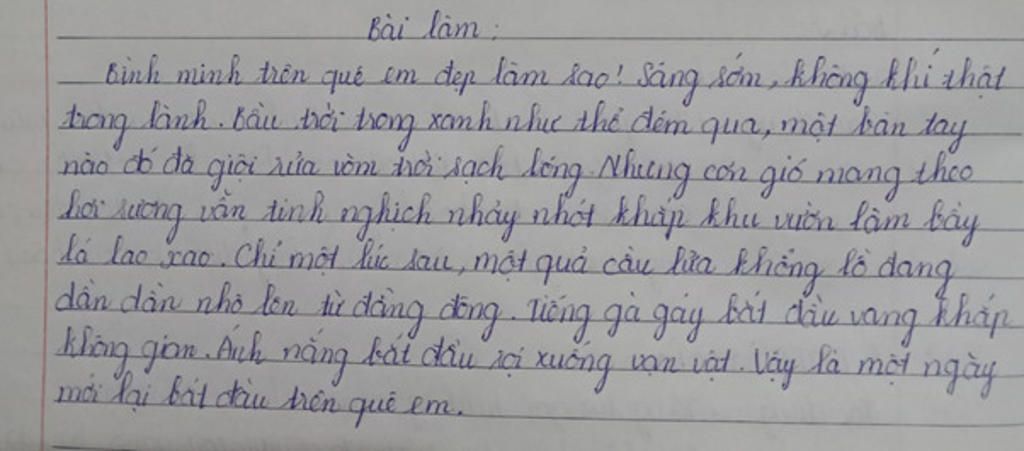 Bài làm:
Bình minh trên quê em đẹp làm sao! Sáng sớm, không khí thật
trong lành. Bầu trời trong xanh như thể đêm qua, một bàn tay
nào đó đã giội rửa vòm trời sạch bóng. Nhưng cơn gió mang theo
hơi sương vẫn tinh nghịch nhảy nhót khắp khu vườn làm bầy
lá lao xao. Chỉ một lúc sau, một quả cầu lửa khổng lồ đang
dần dần nhô lên từ đằng đông. Tiếng gà gáy bắt đầu vang khắp
không gian. Ánh nắng bắt đầu rọi xuống vạn vật. Vậy là một ngày
mới lại bắt đầu trên quê em.